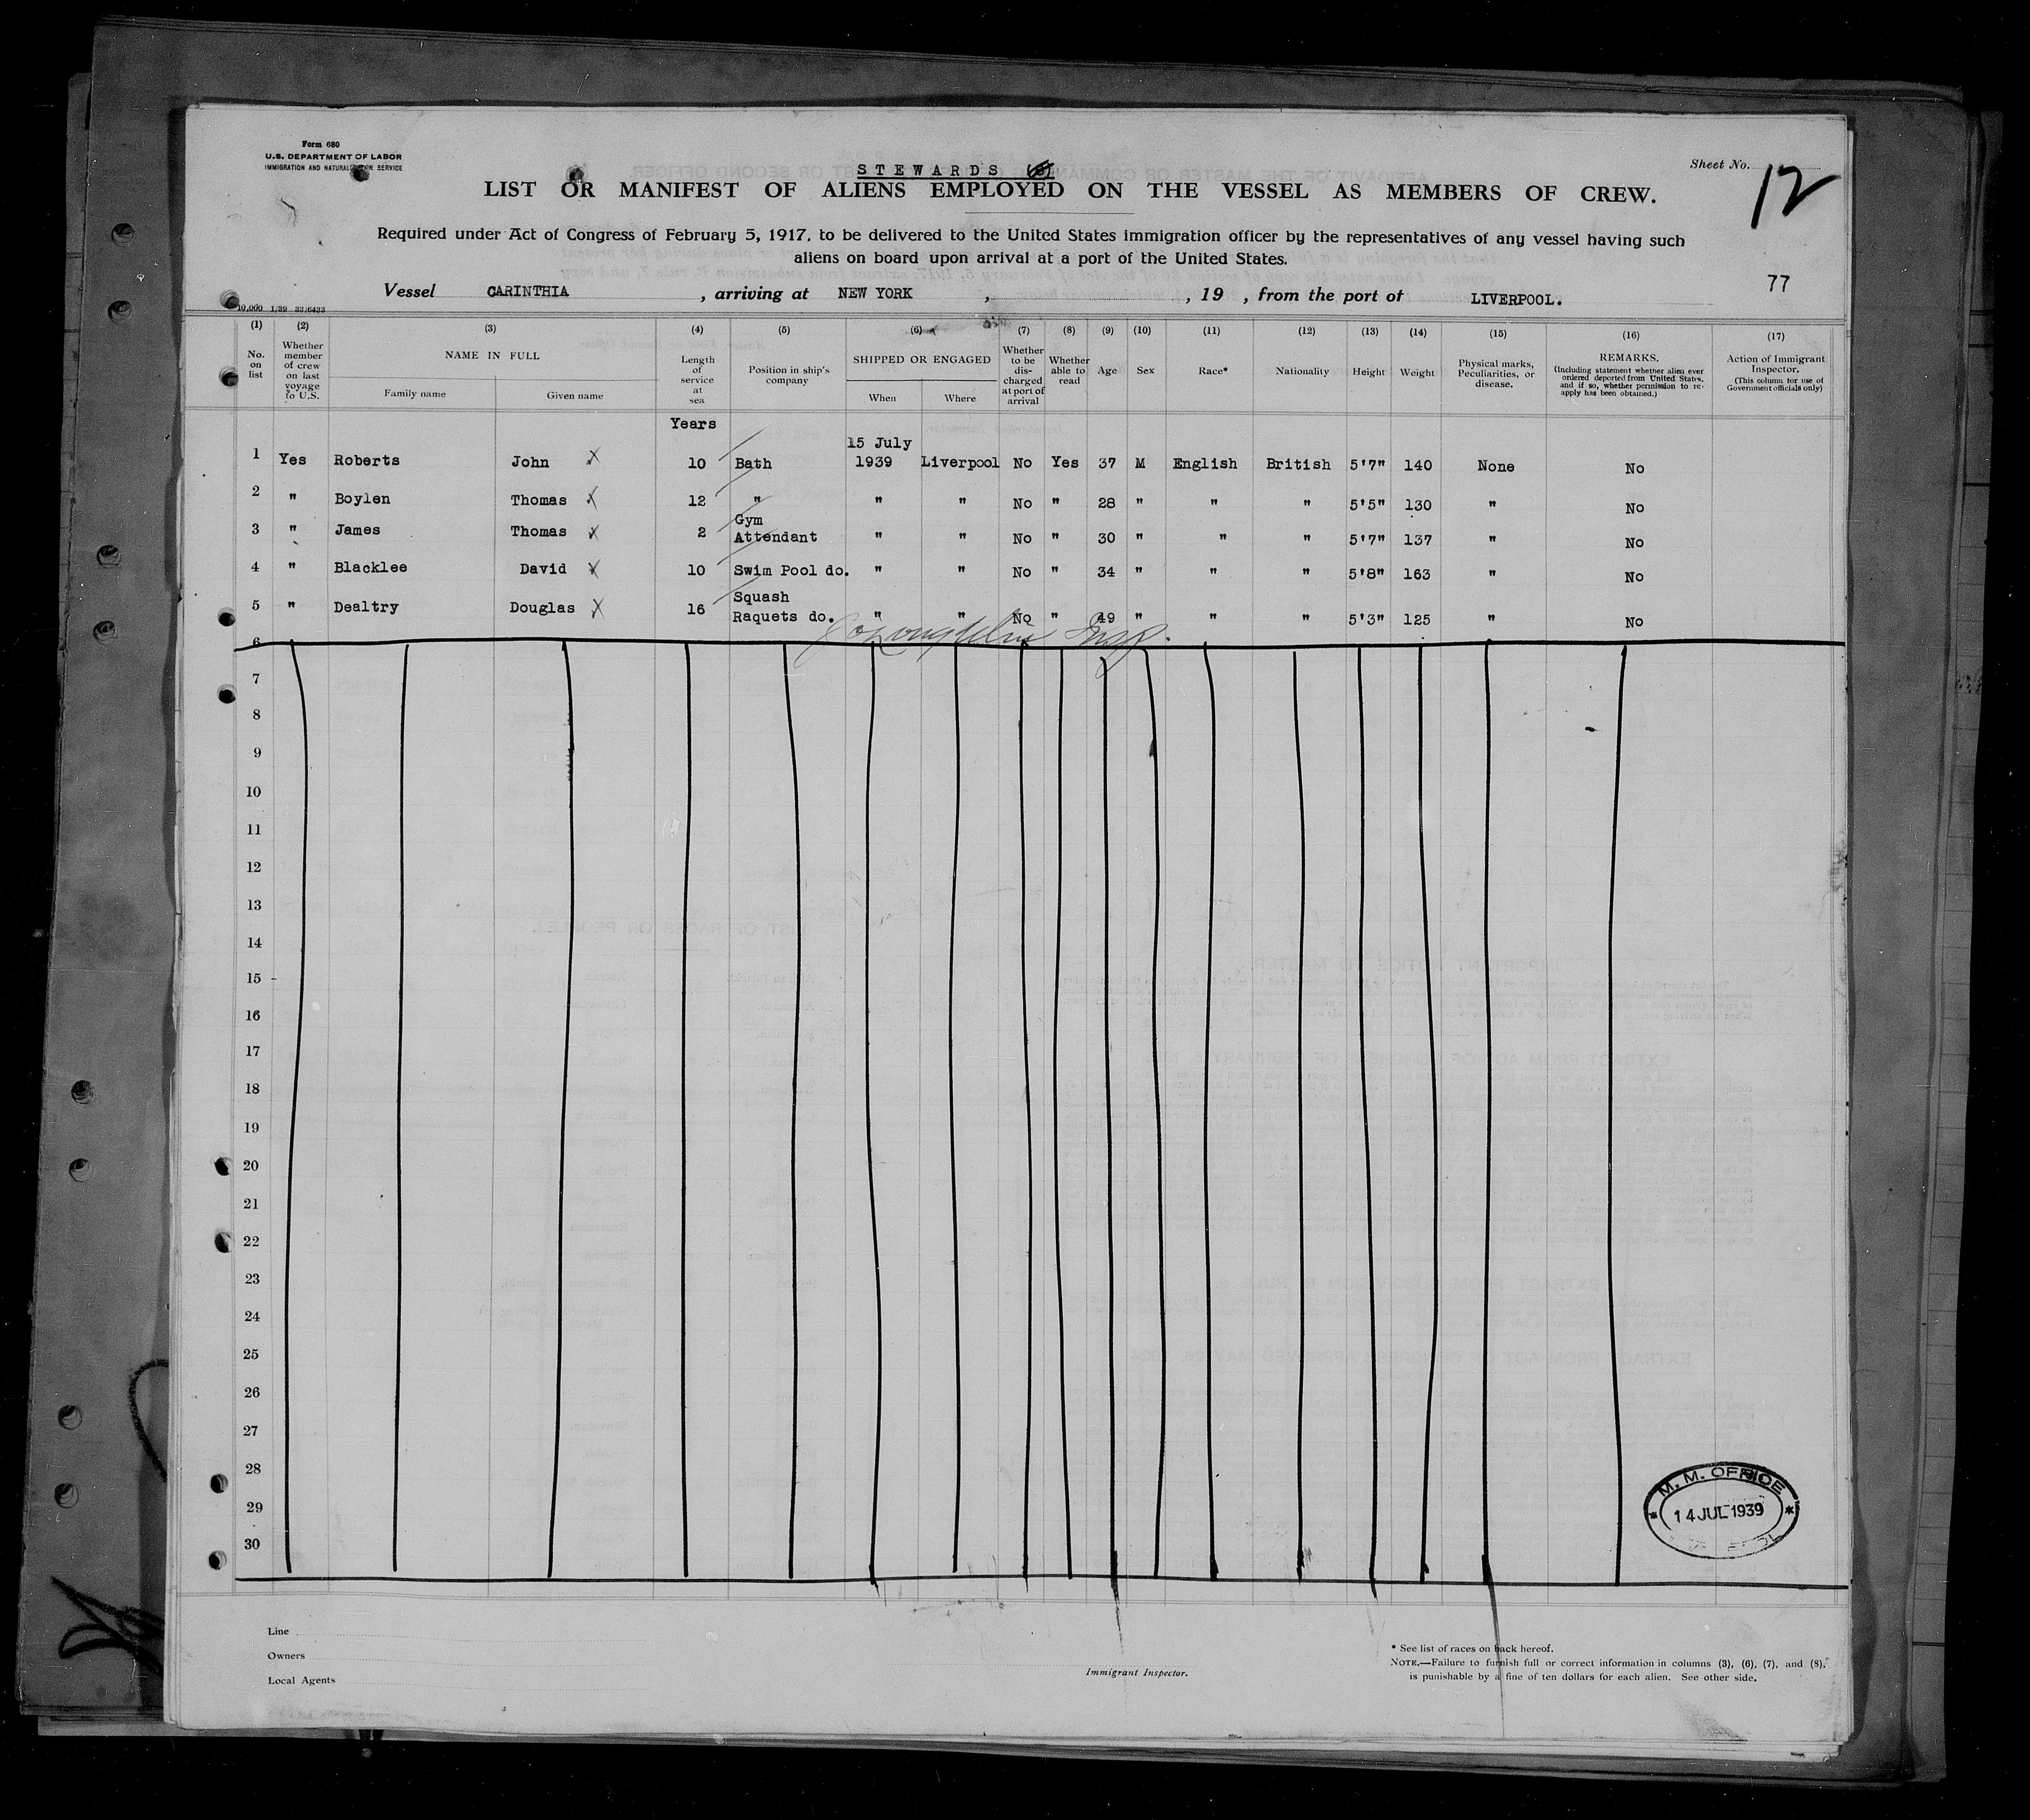 Form 680
U.S. DEPARTMENT OF LABOR
IMMIGRATION AND NATURALIZATION SERVICE
STEWARDS
Sheet No. 12
LIST OR MANIFEST OF ALIENS EMPLOYED ON THE VESSEL AS MEMBERS OF CREW.
Required under Act of Congress of February 5, 1917, to be delivered to the United States immigration officer by the representatives of any vessel having such
aliens on board upon arrival at a port of the United States.
77
Vessel CARINTHIA , arriving at NEW YORK , , 19 , from the port of LIVERPOOL.
10,000 1/39 33/6433
(1) (2) (3) (4) (5) (6) (7) (8) (9) (10) (11) (12) (13) (14) (15) (16) (17)
No. on list
Whether member of crew on last voyage to U.S.
NAME IN FULL
Family name
Given name
Length of service at sea
Position in ship's company
SHIPPED OR ENGAGED
When
Where
Whether to be discharged at port of arrival
Whether able to read
Age
Sex
Race*
Nationality
Height
Weight
Physical marks, Peculiarities, or disease.
REMARKS.
(Including statement whether alien ever ordered deported from United States, and if so, whether permission to re-apply has been obtained.)
Action of Immigrant Inspector.
(This column for use of Government officials only)
Years
15 July
1 Yes Roberts John X 10 Bath 1939 Liverpool No Yes 37 M English British 5'7" 140 None No
2 " Boylen Thomas X 12 " " " No " 28 " " " 5'5" 130 " No
3 " James Thomas X 2 Gym Attendant " " No " 30 " " " 5'7" 137 " No
4 " Blacklee David X 10 Swim Pool do. " " No " 34 " " " 5'8" 163 " No
5 " Dealtry Douglas X 16 Squash Raquets do. " " No " 49 " " " 5'3" 125 " No
6
7
8
9
10
11
12
13
14
15
16
17
18
19
20
21
22
23
24
25
26
27
28
29
30
M. M. OFFICE
14 JUL 1939
Line
Owners
Local Agents
Immigrant Inspector.
* See list of races on back hereof.
NOTE.—Failure to furnish full or correct information in columns (3), (6), (7), and (8),
is punishable by a fine of ten dollars for each alien. See other side.